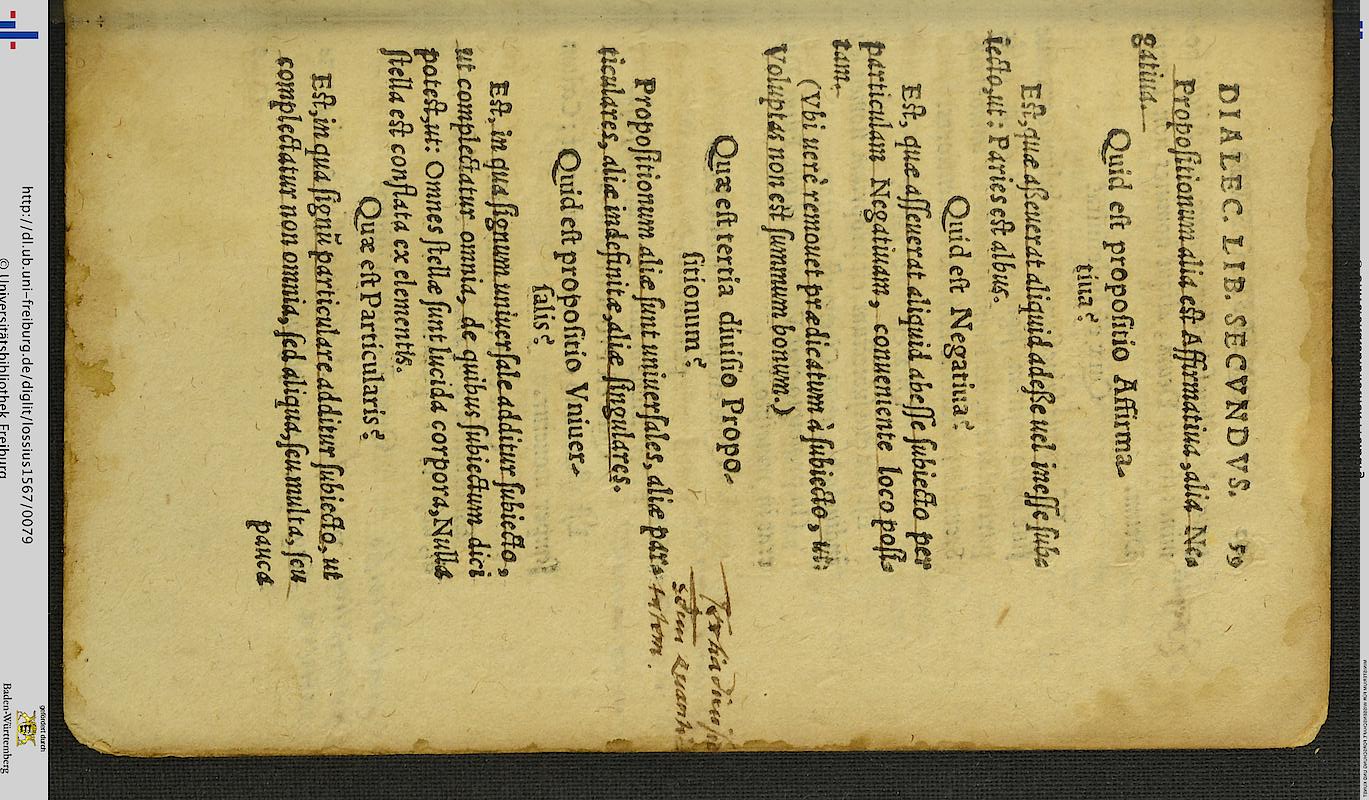 DIALEC. LIB. SECVNDVS. 59
Propoſitionum alia eſt Affirmatiua, alia Ne⸗
gatiua.
Quid eſt propoſitio Affirma⸗
tiua?
Eſt, quæ aſſeuerat aliquid adeſſe uel ineſſe ſub⸗
iecto, ut: Paries eſt albus.
Quid eſt Negatiua?
Eſt, quæ aſſeuerat aliquid abeſſe ſubiecto per
particulam Negatiuam, conueniente loco poſi⸗
tam.
(Vbi uerè remouet prædicatum à ſubiecto, ut:
Voluptas non eſt ſummum bonum.)
Quæ eſt tertia diuiſio Propo⸗
ſitionum?
Propoſitionum aliæ ſunt uniuerſales, aliæ par⸗
ticulares, aliæ indefinitæ, aliæ ſingulares.
Tertia diuiſi
secundum quanti
tatem.
Quid eſt propoſitio Vniuer⸗
ſalis?
Eſt, in qua ſignum uniuerſale additur ſubiecto,
ut complectatur omnia, de quibus ſubiectum dici
poteſt, ut: Omnes ſtellæ ſunt lucida corpora, Nulla
ſtella eſt conflata ex elementis.
Quæ eſt Particularis?
Eſt, in qua ſignũ particulare additur ſubiecto, ut
complectatur non omnia, ſed aliqua, ſeu multa, ſeu
pauca
http://dl.ub.uni-freiburg.de/diglit/lossius1567/0079
© Universitätsbibliothek Freiburg
gefördert durch
Baden-Württemberg